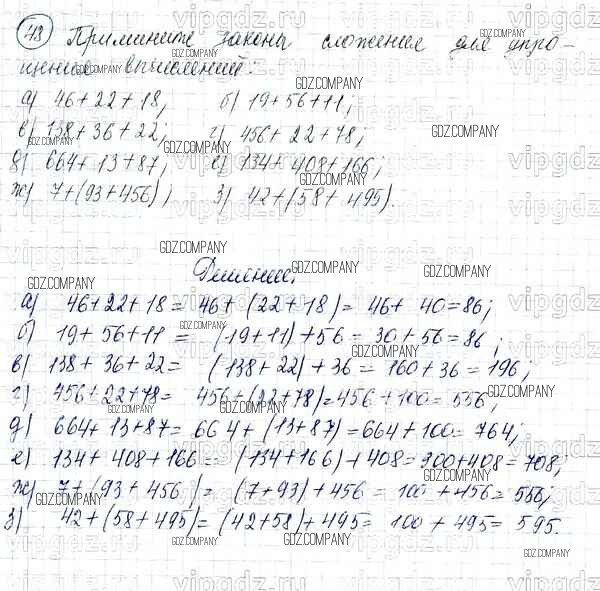 43 Примините законы сложения для упро-
щение вычислений:
а) 46+22+18, б) 19+56+11;
в) 138+36+22; г) 456+22+78;
д) 664+13+87; е) 134+408+166;
ж) 7+(93+456); з) 42+(58+495).
Решение.
а) 46+22+18 = 46+(22+18) = 46+ 40=86;
б) 19+56+11 = (19+11)+56=30+56=86;
в) 138+36+22= (138+22)+36= 160+36=196;
г) 456+22+78= 456+(22+78)=456+100=556;
д) 664+13+87=664+(13+87)=664+100=764;
е) 134+408+166= (134+166)+408=300+408=708;
ж) 7+(93+456)= (7+93)+456= 100+456=556;
з) 42+(58+495)=(42+58)+495= 100+495=595.
vipgdz.ru
GDZ.COMPANY